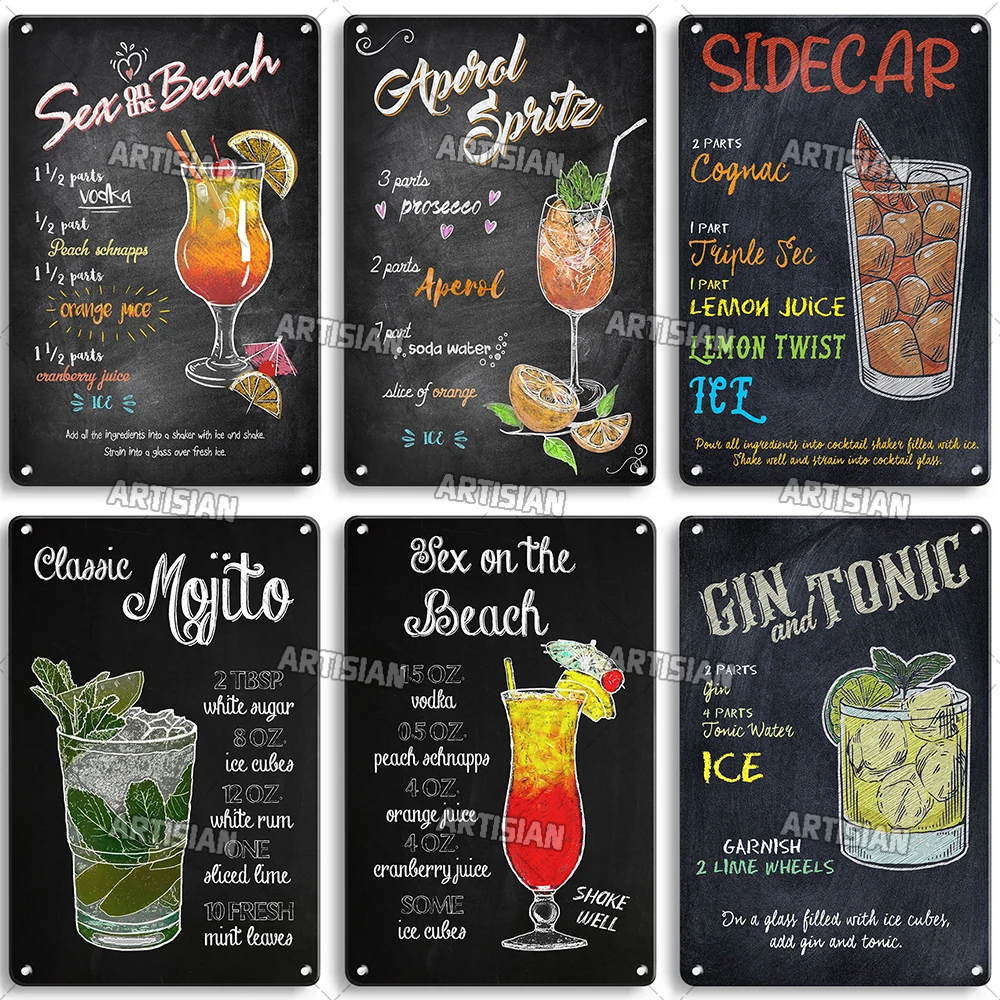 Sex on the Beach
1 1/2 parts
vodka
1/2 part
Peach schnapps
1 1/2 parts
orange juice
1 1/2 parts
cranberry juice
ICE
Add all the ingredients into a shaker with ice and shake.
Strain into a glass over fresh ice.
Aperol
Spritz
3 parts
prosecco
2 parts
Aperol
1 part
soda water
slice of orange
ICE
SIDECAR
2 PARTS
Cognac
1 PART
Triple Sec
1 PART
LEMON JUICE
LEMON TWIST
ICE
Pour all ingredients into cocktail shaker filled with ice.
Shake well and strain into cocktail glass.
Classic Mojito
2 TBSP.
white sugar
8 OZ.
ice cubes
12 OZ.
white rum
ONE
sliced lime
10 FRESH
mint leaves
Sex on the
Beach
1.5 OZ.
vodka
0.5 OZ.
peach schnapps
4 OZ.
orange juice
4 OZ.
cranberry juice
SOME
ice cubes
SHAKE
WELL
GIN and TONIC
2 PARTS
Gin
4 PARTS
Tonic Water
ICE
GARNISH
2 LIME WHEELS
In a glass filled with ice cubes,
add gin and tonic.
ARTISIAN
ARTISIAN
ARTISIAN
ARTISIAN
ARTISIAN
ARTISIAN
ARTISIAN
ARTISIAN
ARTISIAN
ARTISIAN
ARTISIAN
ARTISIAN
ARTISIAN